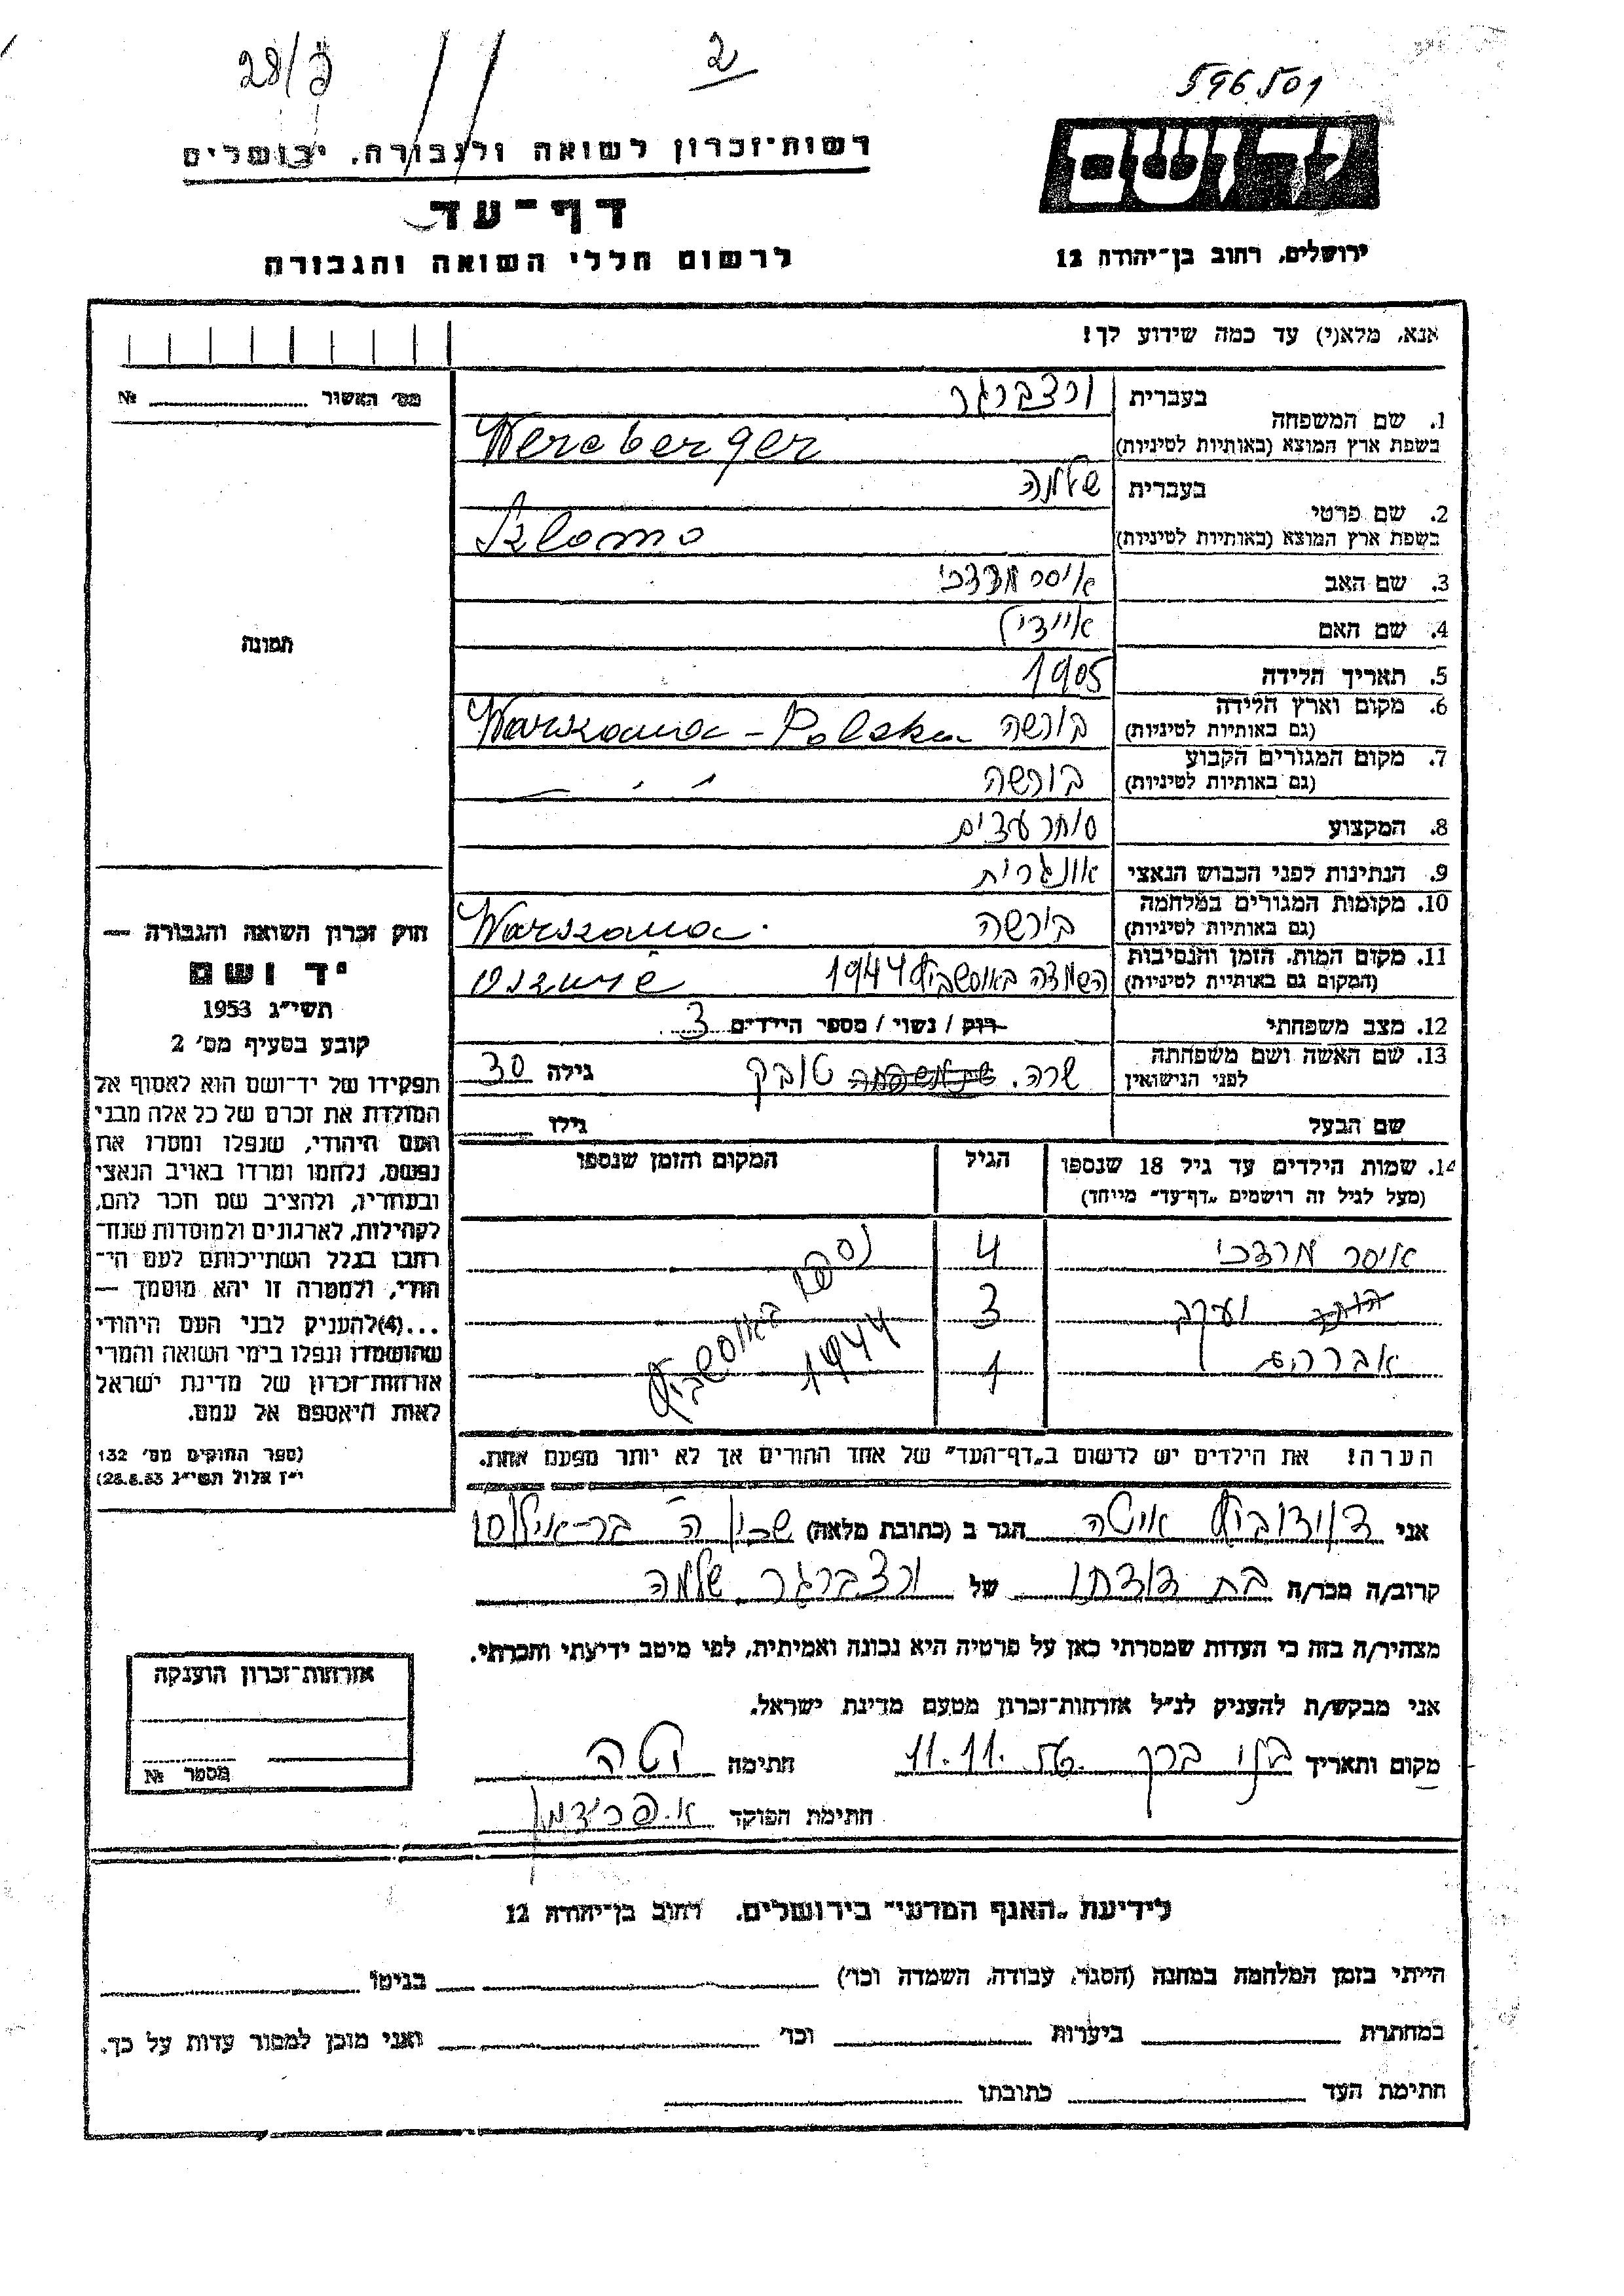 28/3
2
596501
יד ושם
רשות־זכרון לשואה ולגבורה, ירושלים
דף־עד
לרשום חללי השואה והגבורה
ירושלים, רחוב בן־יהודה 12
אנא, מלא(י) עד כמה שידוע לך!
מס׳ האשור № 
1. שם המשפחה בעברית ורצברגר
בשפת ארץ המוצא (באותיות לטיניות) Wercberger
2. שם פרטי בעברית שלמה
בשפת ארץ המוצא (באותיות לטיניות) Szlomo
3. שם האב איסר מרדכי
4. שם האם איידיל
5. תאריך הלידה 1905
6. מקום וארץ הלידה (גם באותיות לטיניות) בורשה Warszawa - Polska
7. מקום המגורים הקבוע (גם באותיות לטיניות) בורשה
8. המקצוע סוחר עצים
9. הנתינות לפני הכבוש הנאצי אונגרית
10. מקומות המגורים במלחמה (גם באותיות לטיניות) בורשה Warszawa
11. מקום המות, הזמן והנסיבות (המקום גם באותיית לטיניות) השמדה באושביץ 1944
12. מצב משפחתי רוק / נשוי / מספר הילדים 3
13. שם האשה ושם משפחתה לפני הנישואין שרה טובק גילה 30
שם הבעל גילו
14. שמות הילדים עד גיל 18 שנספו הגיל המקום והזמן שנספו
(מעל לגיל זה רושמים „דף־עד״ מייחד)
איסר מרדכי 4 נספו
יעקב 3 באושביץ
אברהם 1 1944
הערה! את הילדים יש לרשום ב„דף־העד״ של אחד ההורים אך לא יותר מפעם אחת.
תמונה
חוק זכרון השואה והגבורה —
יד ושם
תשי״ג 1953
קובע בסעיף מס׳ 2
תפקידו של יד־ושם הוא לאסוף אל
המולדת את זכרם של כל אלה מבני
העם היהודי, שנפלו ומסרו את
נפשם, נלחמו ומרדו באויב הנאצי
ובעוזריו, ולהציב שם וזכר להם,
לקהילות, לארגונים ולמוסדות שנח־
רבו בגלל השתייכותם לעם הי־
הודי, ולמטרה זו יהא מוסמך —
...(4)להעניק לבני העם היהודי
שהושמדו ונפלו בימי השואה והמרי
אזרחות־זכרון של מדינת ישראל
לאות היאספם אל עמם.
(ספר החוקים מס׳ 132
י״ז אלול תשי״ג 28.8.53)
אני דוידוביץ איטה הגר ב (כתובת מלאה)
קרוב/ה מכר/ה בת דודתו של ורצברגר שלמה
מצהיר/ה בזה כי העדות שמסרתי כאן על פרטיה היא נכונה ואמיתית, לפי מיטב ידיעתי והכרתי.
אני מבקש/ת להעניק לנ״ל אזרחות־זכרון מטעם מדינת ישראל.
מקום ותאריך בני ברק 11.11. חתימה
חתימת הפוקד א. פרידמן
אזרחות־זכרון הוענקה
מספר №
לידיעת „האגף המדעי״ בירושלים, רחוב בן־יהודה 12
הייתי בזמן המלחמה במחנה (הסגר, עבודה, השמדה וכו׳) בגיטו
במחתרת ביערות וכו׳ ואני מוכן למסור עדות על כך.
חתימת העד כתובתו